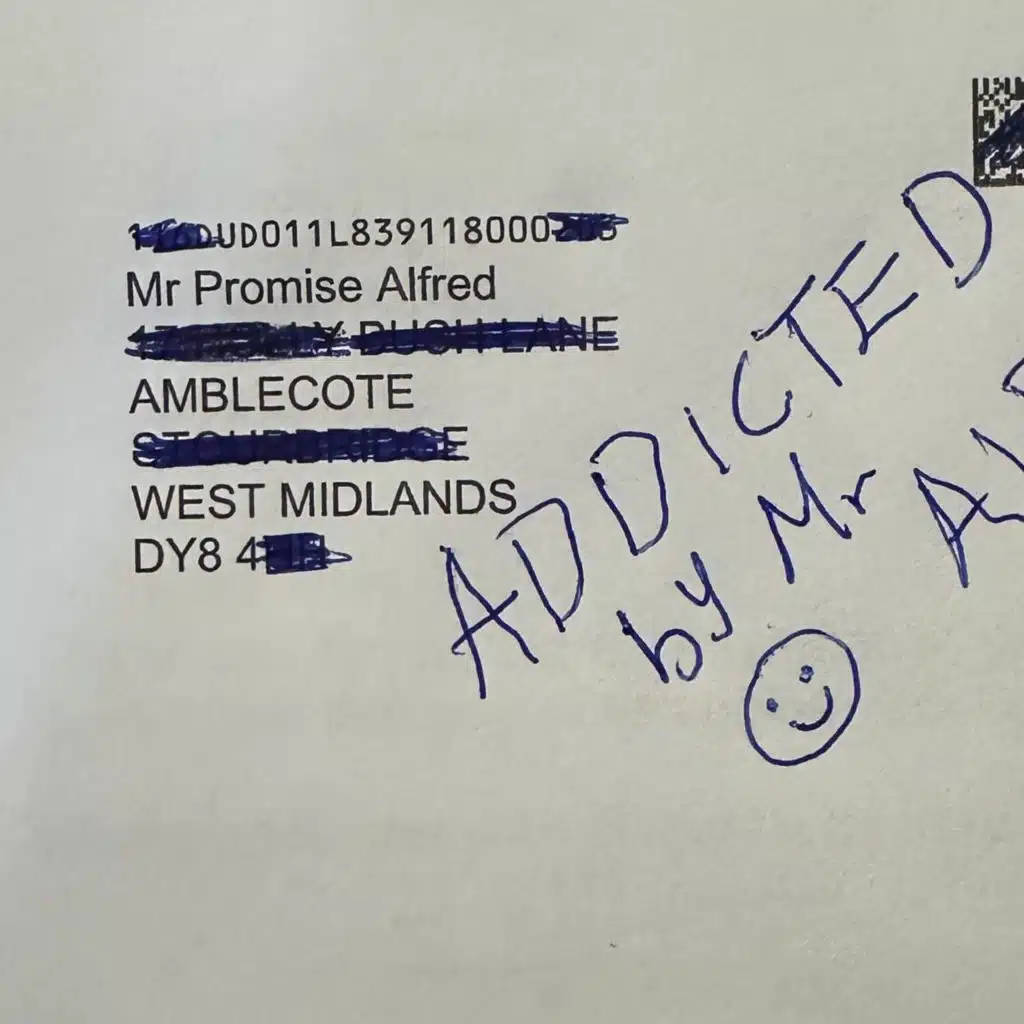 UD011L839118000
Mr Promise Alfred
AMBLECOTE
WEST MIDLANDS
DY8 4
ADDICTED
by Mr